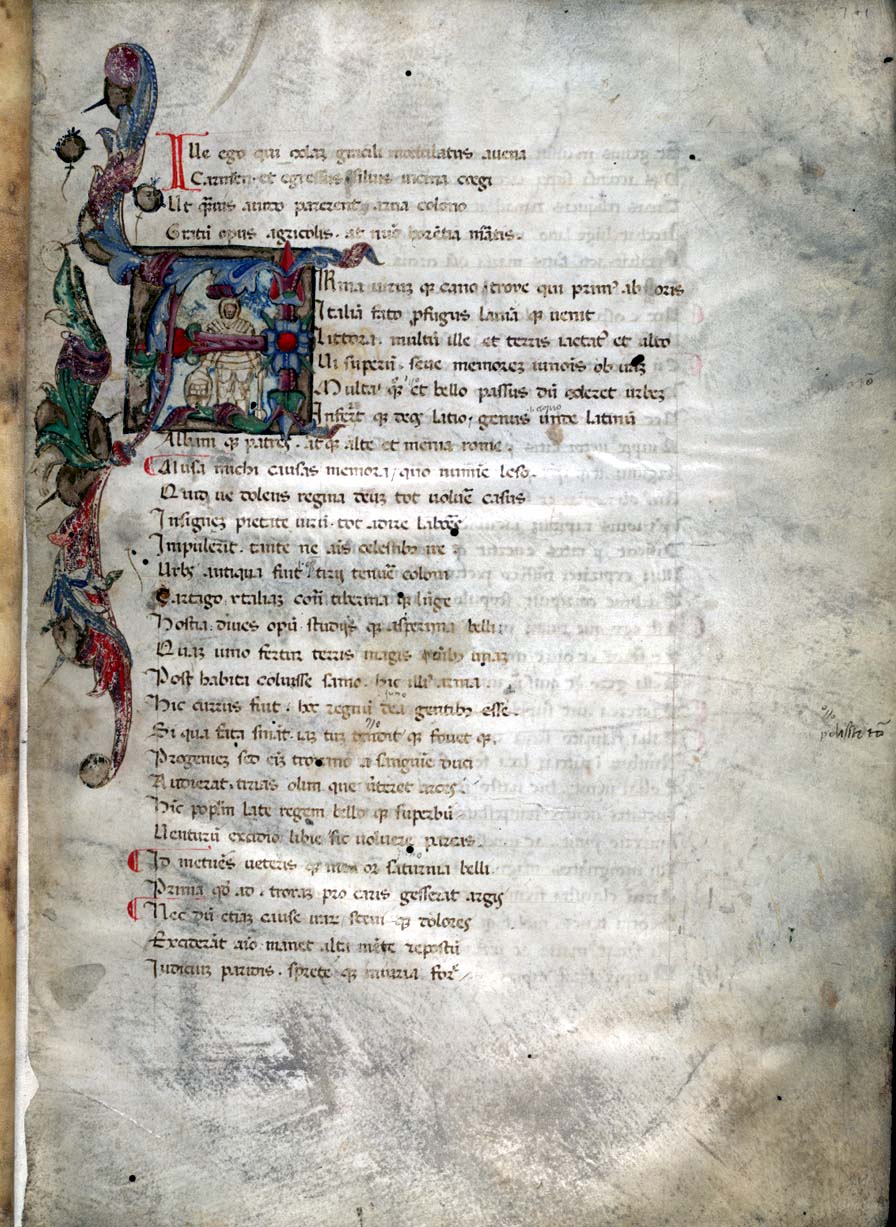 Ille ego qui qōdaʒ gracili modulatus auena
Carmen · et egressus siluis uicina coegi
Ut q̄uis auido parerent arua colono
Gratū opus agricolis · at nūc horrētia mārtis ·
Arma uirūꝫ qꝫ cano · troye qui primꝰ ab horis
Italiā fato ꝓfugus lauina qꝫ uenit
Littora · multū ille et terris iactatꝰ et alto
Ui superū · seue memoreʒ iunonis ob iraʒ
Multa qꝫ et bello passus dū conderet urbeʒ
Inferret qꝫ deos latio / genus unde latinū
Albani qꝫ patres · atqꝫ alte et menia rome ·
Causa michi causas memora / quo numine leso ·
Quid ue dolens regina deuʒ tot uoluē casus
Insigneʒ pietate uirū · tot adire labores
Impulerit · tante ne aīs celestibꝫ ire
Urbs antiqua fuit tirij tenuē coloni
Cartago ytaliaʒ contra tiberina qꝫ lōge
Hostia · diues opū · studijs qꝫ asperima belli
Quaʒ iuno fertur terris magis oībꝫ unaʒ
Post habita coluisse samo · hic illiꝰ arma ·
Hic currus fuit · hoc regnū dea gentibꝫ esse ·
Si qua fata sināt · iaʒ tuʒ tendit qꝫ fouet qꝫ ·
Progenieʒ sed eīʒ troiano a sanguīe duci
Audierat · tirias olim que ūteret arces
Hīc poplm late regem bello qꝫ superbū
Uenturū excidio libie / sic uoluere parcas
Id metuēs ueteris qꝫ memor saturnia belli ·
Prima qđ ad · troiaʒ pro caris gesserat argis
Nec dū etiaʒ cause iraʒ seui qꝫ dolores
Exciderāt aīo manet alta mēte repostū
Judiciuʒ paridis · sprete qꝫ iniuria forē